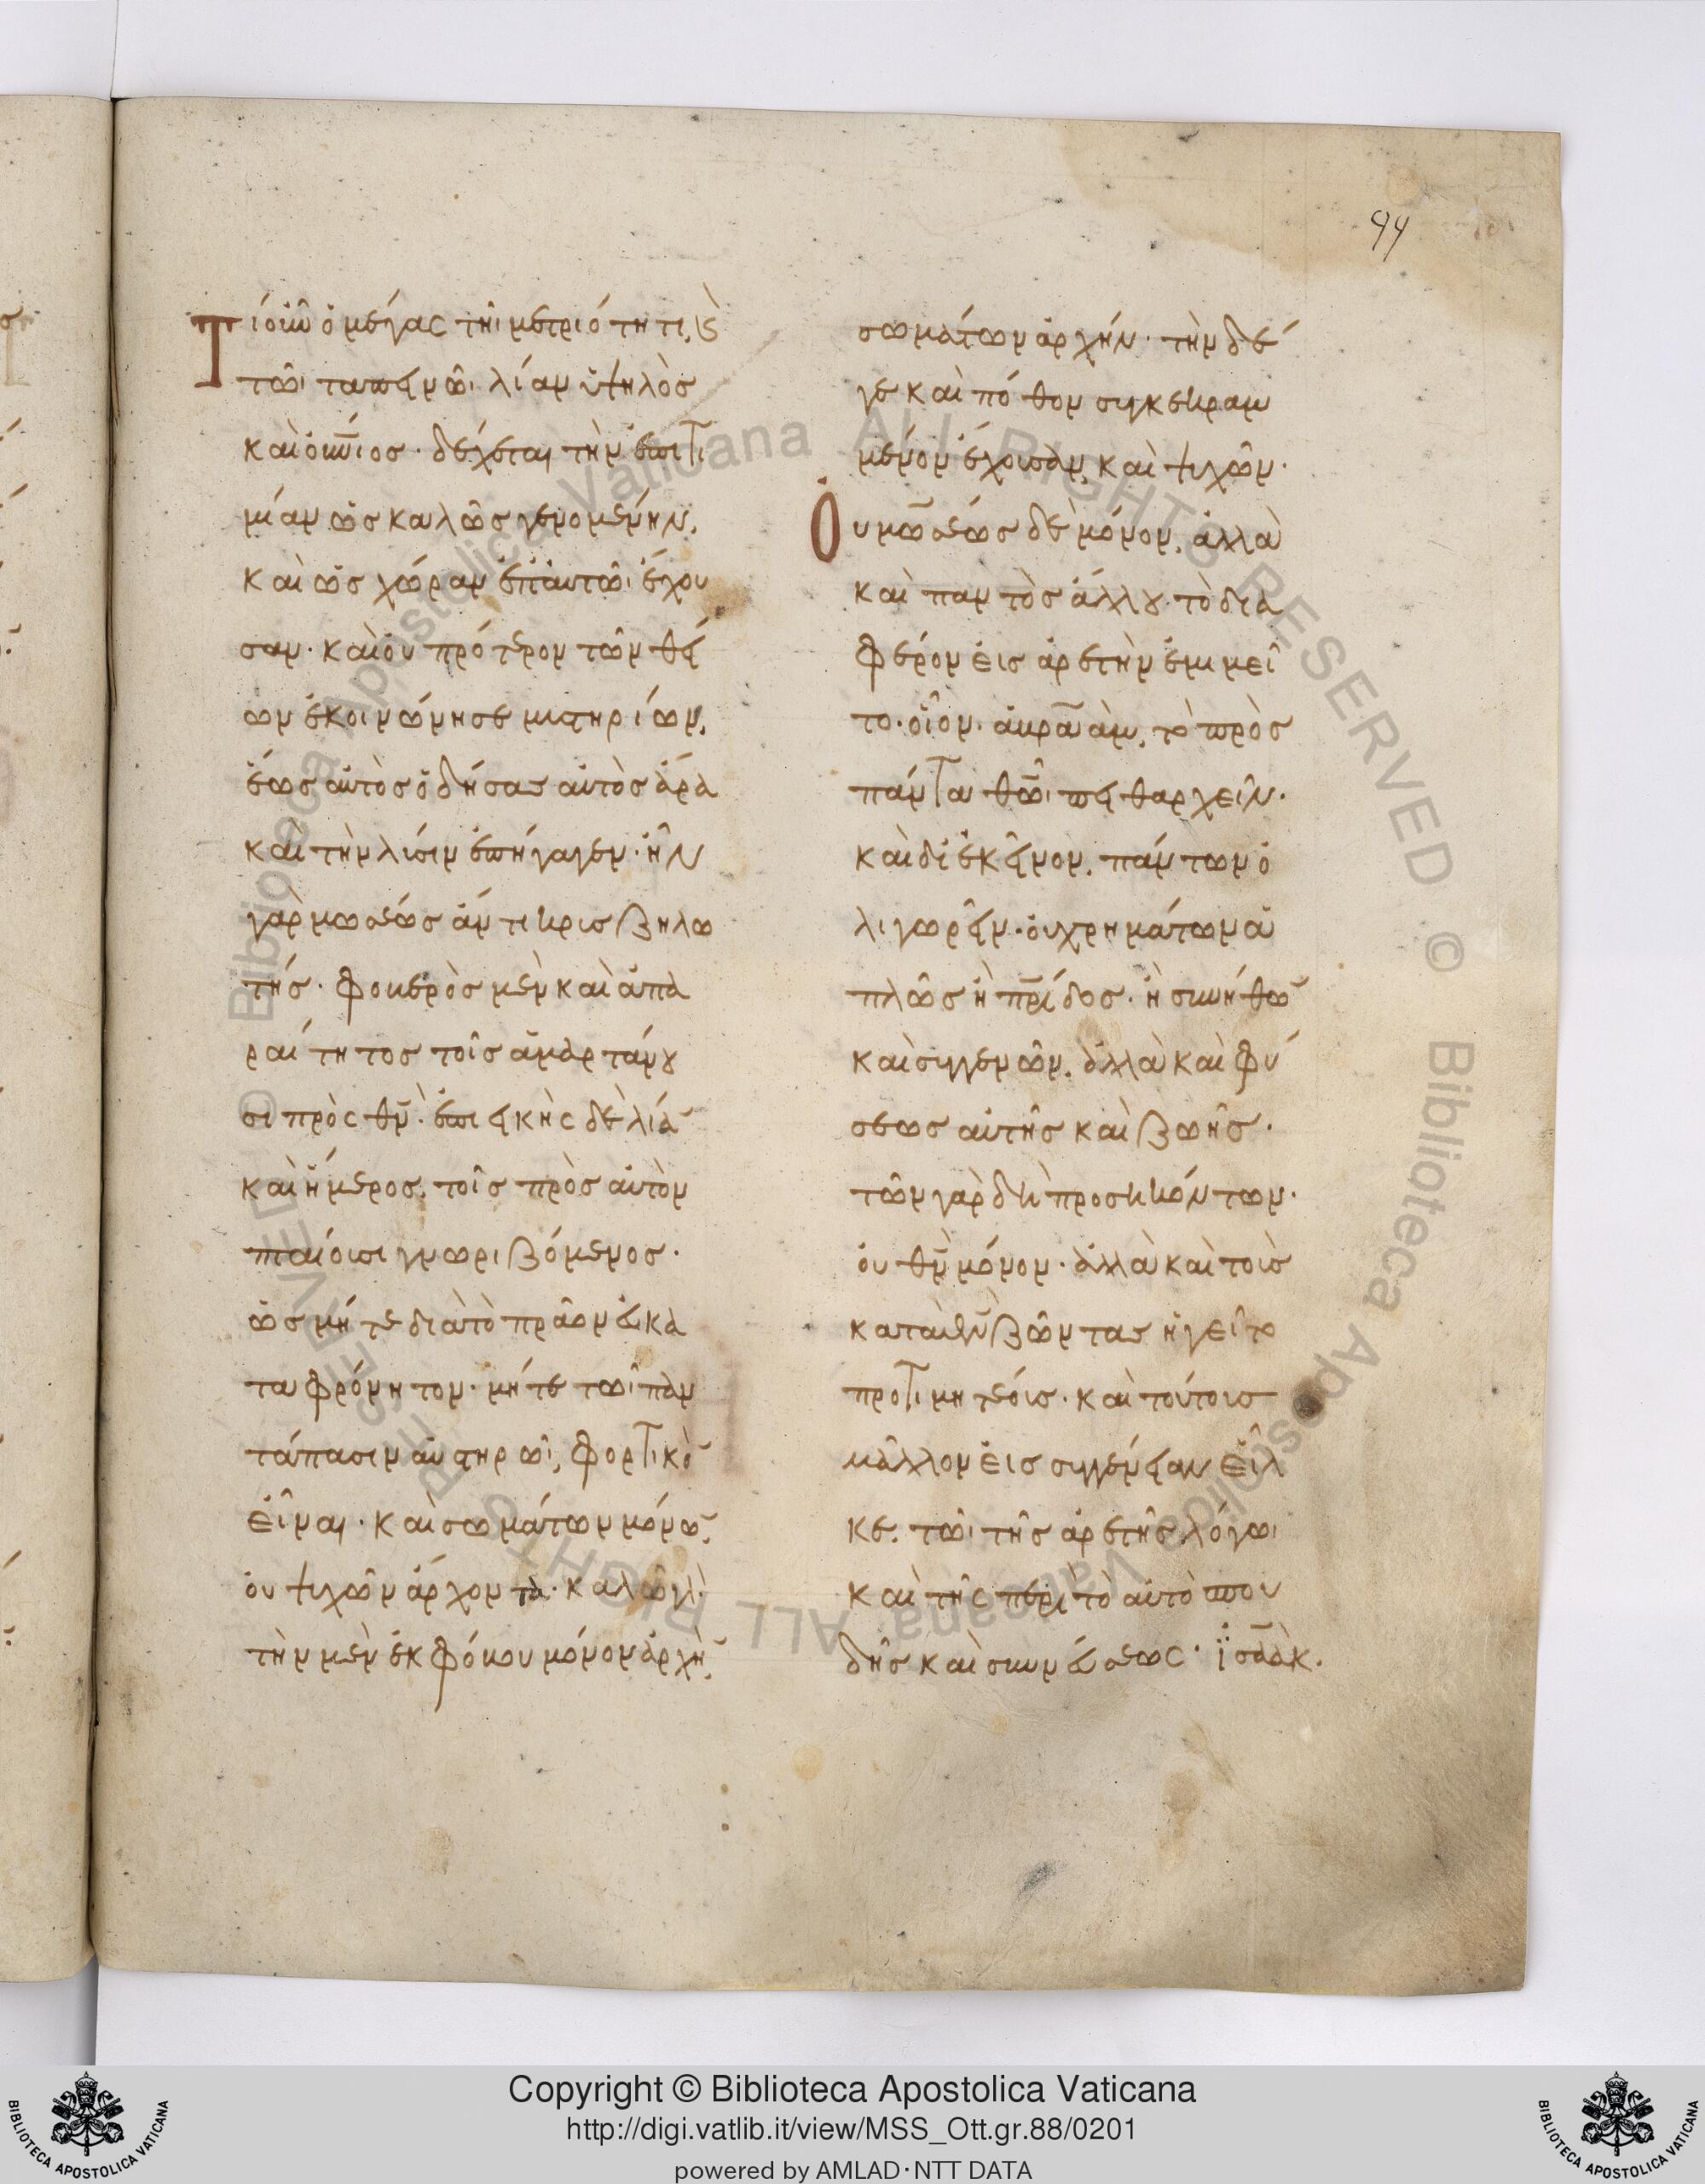 94
Τί οὖν ὁ μέγας τῆι μετριότητι, (καὶ)
τῶι ταπεινῶι λίαν ὑψηλὸσ
καὶ οὐνιοσ· δέχεται τὴν ἐπιτι
μίαν ὡσ καλῶσ γενομένην,
καὶ ὡσ χώραν ἐπ' αὐτῶι ἔχου
σαν· καὶ οὐ πρότερον τῶν θεί
ων ἐκοινώνησε μυστηρίων,
ἕωσ αὐτὸσ ὁ δήσασ αὐτὸσ ἄρα
καὶ τὴν λύσιν ἐπήγαγεν· ἦν
γὰρ μωσέωσ ἄντικρισ ζηλω
τήσ· φοβερὸσ μὲν καὶ ἀπα
ραίτητοσ τοῖσ ἁμαρτάνου
σι πρὸς θν̄· ἐπιεικὴς δὲ λίαν
καὶ ἥμεροσ, τοῖσ πρὸσ αὐτὸν
πταίουσι γνωριζόμενοσ·
ὡσ μήτε διὰ τὸ πρᾶον εὐκα
ταφρόνητον· μήτε τῶι παν
τάπασιν αὐστηρῶι, φορτικὸν
εἶναι· καὶ σωμάτων μόνων,
οὐ ψυχῶν ἄρχοντα· καλῶν
τὴν μὲν ἐκ φόβου μόνον ἀρχὴν,
σωμάτων ἀρχήν· τὴν δέ
γε καὶ πόθον συγκεκραμ
μένον ἔχουσαν, καὶ ψυχῶν·
Οὐ μωσέωσ δὲ μόνον, ἀλλὰ
καὶ παντὸσ ἄλλου τὸ δια
φέρον εἰσ ἀρετὴν ἐμιμεῖ
το· οἷον· ἀβραὰμ, τὸ πρὸσ
πάντα θω̄ι πειθαρχεῖν·
καὶ δι' ἐκεῖνον, πάντων ὀ
λιγωρεῖν· οὐ χρημάτων ἁ
πλῶσ ἢ πρ̄ίδοσ· ἢ συνήθων
καὶ συγγενῶν, ἀλλὰ καὶ φύ
σεωσ αὐτῆσ καὶ ζωῆσ·
τῶν γὰρ δὴ προσηκόντων·
οὐ θν̄ μόνον· ἀλλὰ καὶ τοὺσ
κατὰ θν̄ ζῶντασ ἡγεῖτο
προτιμητέουσ· καὶ τούτουσ
μᾶλλον εἰσ συγγένειαν εἷλ
κε, τῶι τῆσ ἀρετῆσ λόγωι
καὶ τῆς περὶ τὸ αὐτὸ σπου
δῆσ καὶ συννεύσεως· ἰσαὰκ.
Copyright © Biblioteca Apostolica Vaticana
http://digi.vatlib.it/view/MSS_Ott.gr.88/0201
powered by AMLAD·NTT DATA
BIBLIOTECA APOSTOLICA VATICANA
BIBLIOTECA APOSTOLICA VATICANA
© Biblioteca Apostolica Vaticana ALL RIGHTS RESERVED © Biblioteca Apostolica Vaticana ALL RIGHTS RESERVED